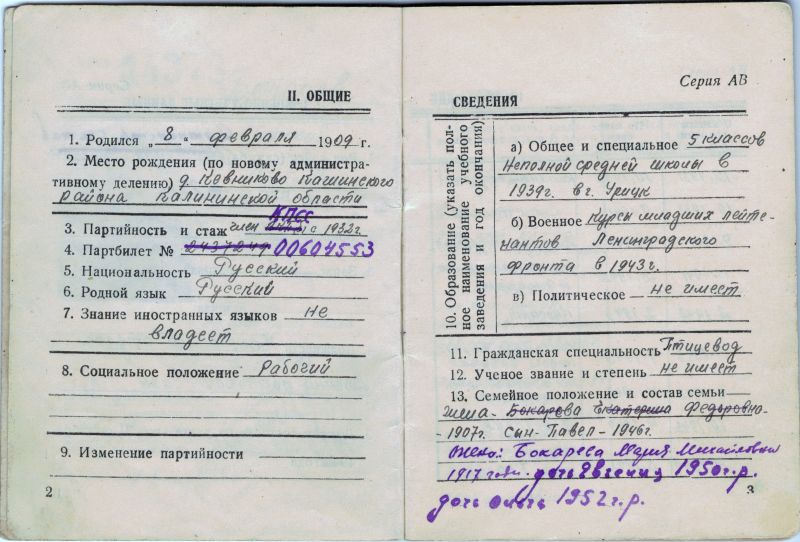 II. ОБЩИЕ
1. Родился „8“ февраля 1909 г.
2. Место рождения (по новому администра-
тивному делению) д. Кевниково Кашинского
района Калининской области
КПСС
3. Партийность и стаж член с 1932 г.
4. Партбилет № 2437249 00604553
5. Национальность Русский
6. Родной язык Русский
7. Знание иностранных языков не
владеет
8. Социальное положение Рабочий
9. Изменение партийности
2
Серия АВ
СВЕДЕНИЯ
10. Образование (указать пол-
ное наименование учебного
заведения и год окончания)
а) Общее и специальное 5 классов
Неполной средней школы в
1939г. в г. Урицк
б) Военное Курсы младших лейте-
нантов Ленинградского
фронта в 1943г.
в) Политическое не имеет
11. Гражданская специальность Птицевод
12. Ученое звание и степень не имеет
13. Семейное положение и состав семьи
жена - Бокарева Екатерина Федоровна -
- 1907г. сын - Павел - 1946г.
Жена: Бокарева Мария Михайловна
1917 года. дочь Евгения 1950 г.р.
3
дочь Ольга 1952 г.р.